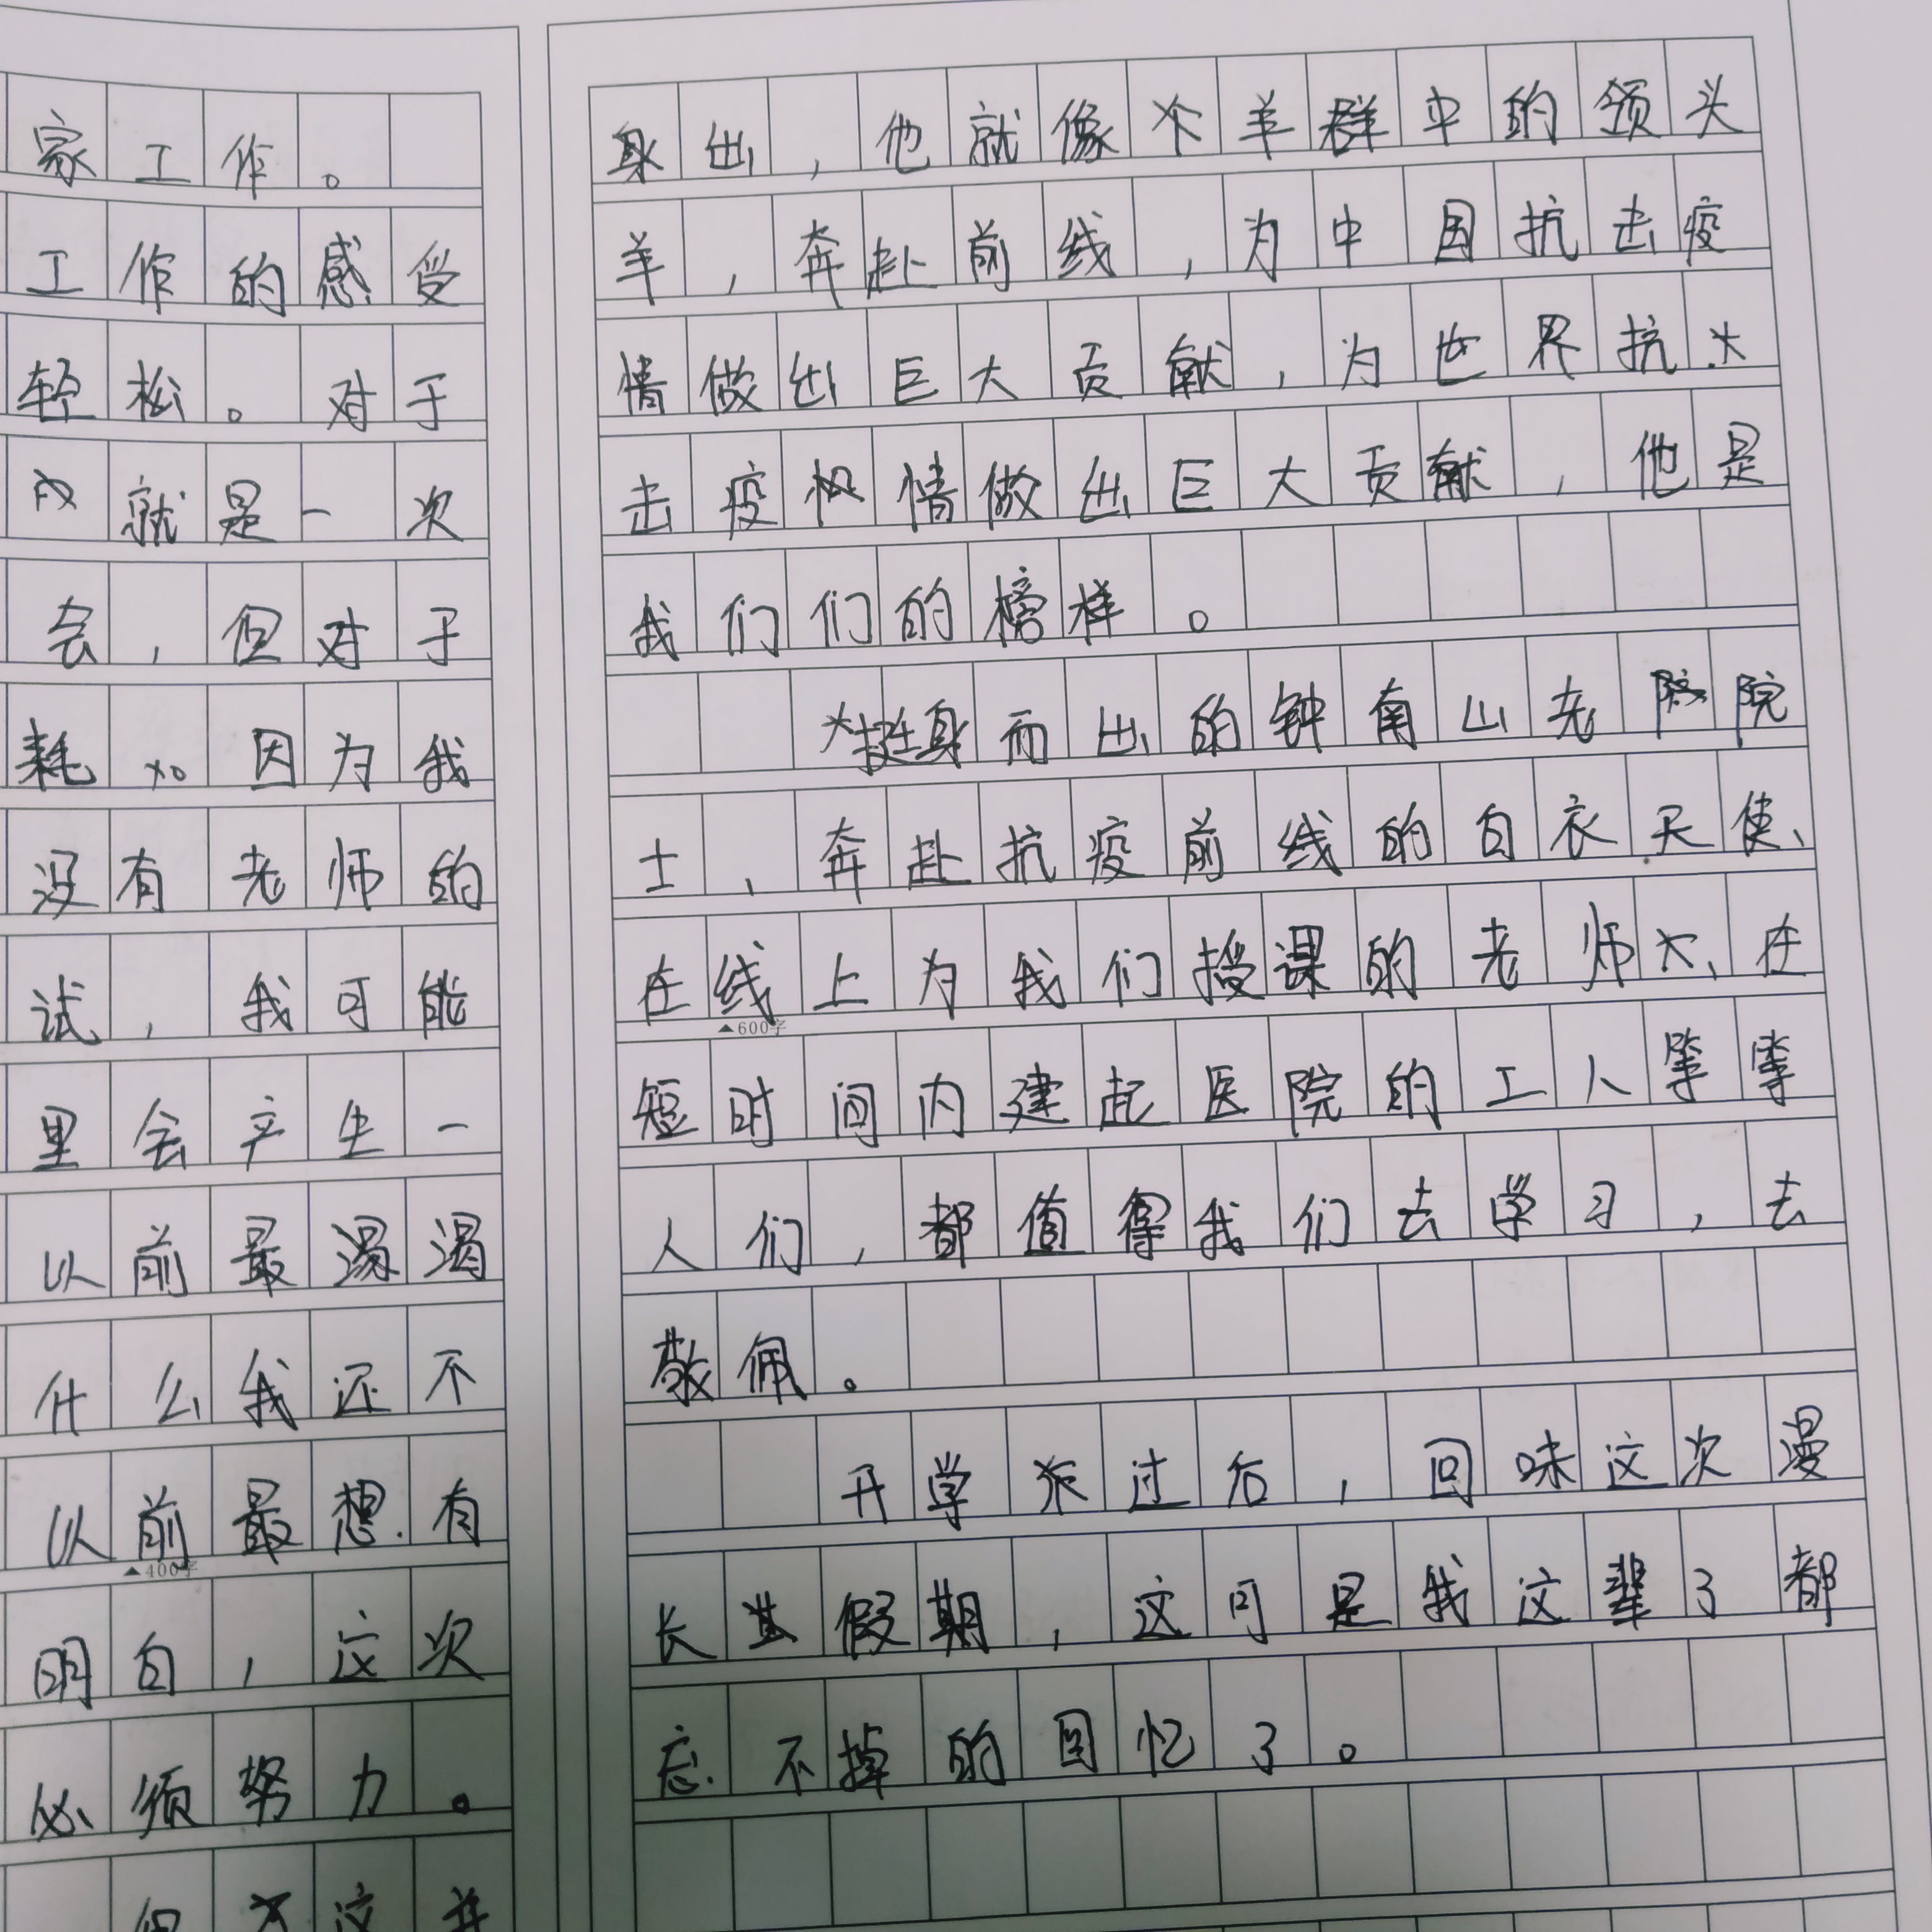 家工作。
工作的感受
轻松。对于
就是一次
会，但对于
耗。因为我
没有老师的
试，我可能
里会产生一
以前最渴渴
什么我还不
以前最想有
▲400字
明白，这次
必须努力。
这
身出，他就像个羊群中的领头
羊，奔赴前线，为中国抗击疫
情做出巨大贡献，为世界抗
击疫情做出巨大贡献，他是
我们们的榜样。
挺身而出的钟南山老院
士、奔赴抗疫前线的白衣天使、
在线上为我们授课的老师、在
▲600字
短时间内建起医院的工人等等
人们，都值得我们去学习，去
敬佩。
开学过后，回味这次漫
长假期，这可是我这辈子都
忘不掉的回忆了。